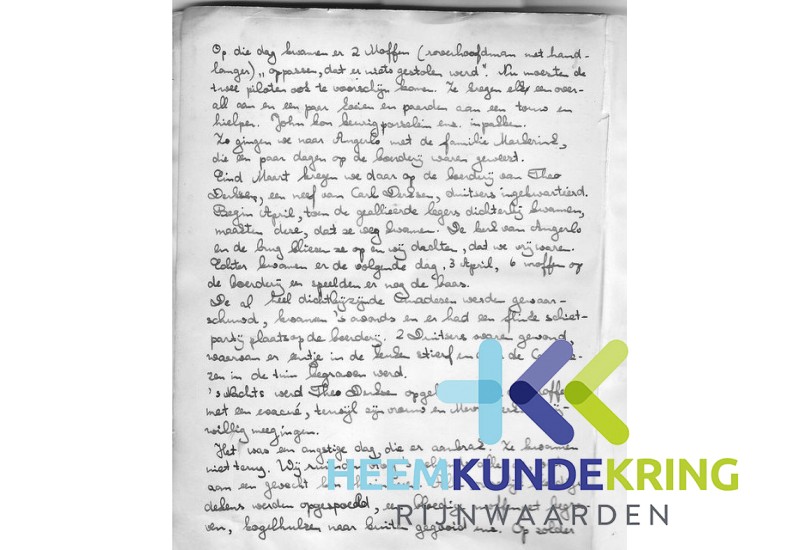 Op die dag kwamen er 2 Moffen (roverhoofdman met hand-
langer) „oppassen, dat er niets gestolen werd". Nu moesten de
twee piloten ook te voorschijn komen. Ze kregen elk een over-
all aan en een paar koeien en paarden aan een touw en
hielpen. John kon keurig porselein enz. inpakken.
Zo gingen we naar Angerlo met de familie
die een paar dagen op de boerderij waren geweest.
Eind Maart kregen we daar op de boerderij van Theo
Derksen, een neef van Carl Derksen, duitsers ingekwartierd.
Begin April, toen de geallieerde legers dichterbij kwamen,
maakten deze, dat ze weg kwamen. De kerk van Angerlo
en de brug bliezen ze op en wij dachten, dat we vrij waren.
Echter kwamen er de volgende dag, 3 April, 6 moffen op
de boerderij en speelden er nog de baas.
De al heel dichtbijzijnde Canadezen werden gewaar-
schuwd, kwamen 's avonds en er had een flinke schiet-
partij plaats op de boerderij. 2 Duitsers waren gewond
waarvan er eentje in de keuken stierf en de
zen in de tuin begraven werd.
's Nachts werd Theo Derksen
met een evacué, terwijl zijn vrouw en
willig meegingen.
Het was een angstige dag, die er aanbrak. Ze kwamen
niet terug. Wij
aan een gevecht
dekens werden opgespoeld, een
ven, kogelhulzen naar buiten gegooid enz. Op zolder
HEEMKUNDEKRING
RIJNWAARDEN